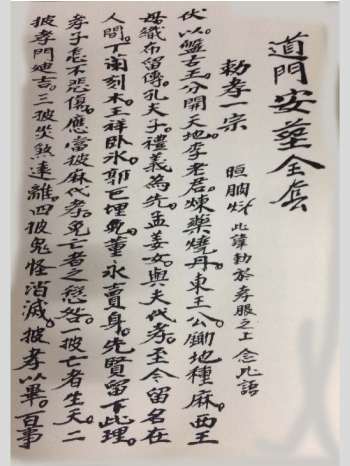 道門安葬全套
勅孝一宗
此諱勅於孝服之上念此語
伏以。盤古王。分開天地。李老君。煉藥燒丹。東王公鋤地種麻。西王
母織布留傳。孔夫子。禮義為先。孟姜女。與夫代孝。至今留名在
人間。丁蘭刻木。王祥卧氷。郭巨埋兒。董永賣身。先賢留下此理。
孝子怎不悲傷。應當披麻代孝。免亡者之愆咎。一披亡者生天。二
披孝門迪吉。三披災煞遠離。四披鬼怪消滅。披孝以畢。百事